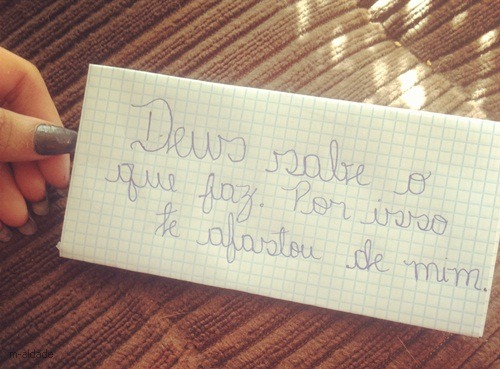 Deus sabe o
que faz. Por isso
te afastou de mim.
m-aldade